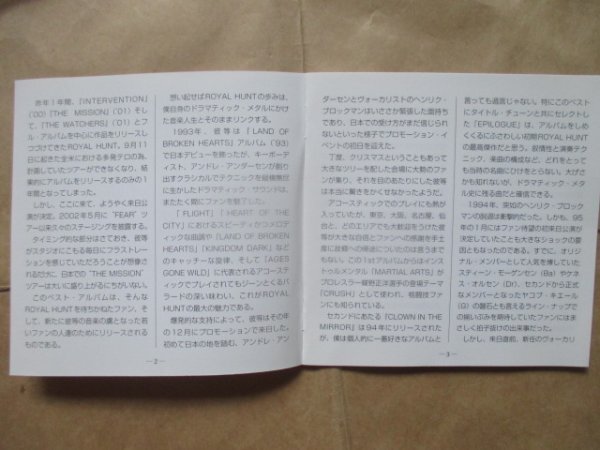 昨年1年間、『INTERVENTION』
('00)『THE MISSION』('01) そし
て、『THE WATCHERS』('01) とフ
ル・アルバムを中心に作品をリリースし
つづけてきたROYAL HUNT。9月11
日に起きた全米における多発テロの為、
計画していたツアーができなくなり、結
果的にアルバムをリリースするのみの1
年間となってしまった。
しかし、ここに来て、ようやく来日公
演が決定。2002年5月に“FEAR”ツ
アー以来久々のステージングを披露する。
タイミング的な部分はさておき、彼等
がスタジオにこもる毎日にフラストレー
ションを感じていただろうことが想像さ
れるだけに、日本での“THE MISSION”
ツアーは大いに盛り上がるにちがいない。
このベスト・アルバムは、そんな
ROYAL HUNTを待ちかねたファン、そ
して、新たに彼等の音楽の虜となった若
いファンの人達のためにリリースされる
ものである。
—2—
想い起せばROYAL HUNTの歩みは、
僕自身のドラマティック・メタルにかけ
た音楽人生とそのままリンクする。
1993年、彼等は『LAND OF
BROKEN HEARTS』アルバム ('93)
で日本デビューを飾ったが、キーボーデ
ィスト、アンドレ・アンダーセンが創り
出すクラシカルでテクニックを縦横無尽
に生かしたドラマティック・サウンドは、
またたく間にファンを魅了した。
「FLIGHT」「HEART OF THE
CITY」におけるスピーディかつメロディ
ックな曲調や「LAND OF BROKEN
HEARTS」「KINGDOM DARK」など
のキャッチーな旋律、そして「AGES
GONE WILD」に代表されるアコーステ
ィックでプレイされてもジーンとくるバ
ラードの深い味わい、これがROYAL
HUNTの最大の魅力である。
爆発的な支持によって、彼等はその年
の12月にプロモーションで来日した。
初めて日本の地を踏む、アンドレ・アン
ダーセンとヴォーカリストのヘンリク・
ブロックマンはいささか緊張した面持ち
であり、日本での受け方がまだ信じられ
ないといった様子でプロモーション・イ
ベントの初日を迎えた。
丁度、クリスマスということもあって
大きなツリーを配した会場に大勢のファ
ンが集り、それを目のあたりにした彼等
は本当に驚きをかくせなかったようだ。
アコースティックでのプレイにも熱が
入っていたが、東京、大阪、名古屋、仙
台と、どのエリアでも大歓迎をうけた彼
等が大きな自信とファンへの感謝を手土
産に故郷への帰途についたのは言うまで
もない。この1stアルバムからはインス
トゥルメンタル「MARTIAL ARTS」が
プロレスラー蝶野正洋選手の登場テーマ
(CRUSH) として使われ、格闘技ファ
ンにも知られている。
セカンドにあたる『CLOWN IN THE
MIRROR』は94年にリリースされた
が、僕は個人的に一番好きなアルバムと
言っても過言じゃない。特にこのベスト
にタイトル・チューンと共にセレクトし
た「EPILOGUE」は、アルバムをしめ
くくるにふさわしい初期ROYAL HUNT
の最高傑作だと思う。叙情性と演奏テク
ニック、楽曲の構成など、どれをとって
も当時の名曲にひけをとらない。大げさ
かも知れないが、ドラマティック・メタ
ル史に残る曲だと確信できる。
1994年、突如のヘンリク・ブロック
マンの脱退は衝撃的だった。しかも、95
年の1月にはファン待望の初来日公演が
決定していたことも大きなショックの要
因ともなったのである。すでに、オリジ
ナル・メンバーとして人気を博していた
スティーン・モーゲンセン (Ba) やケネ
ス・オルセン (Dr)、セカンドから正式
なメンバーとなったヤコブ・キエール
(G) の鑽石とも言えるライン・ナップで
の揃いぶみを期待していたファンにはま
さしく拍子抜けの出来事だった。
しかし、来日直前、新任のヴォーカリ
—3—